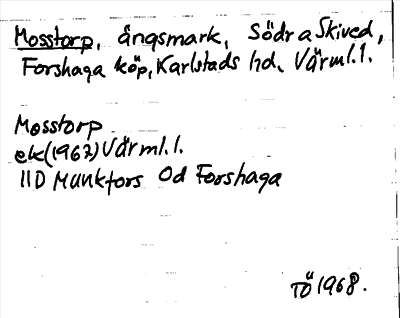 Mosstorp, ängsmark, Södra Skived,
Forshaga köp, Karlstads hd, Värml. l.
Mosstorp
ek (1962) Värml. l.
11D Munkfors 0d Forshaga
TÖ 1968.